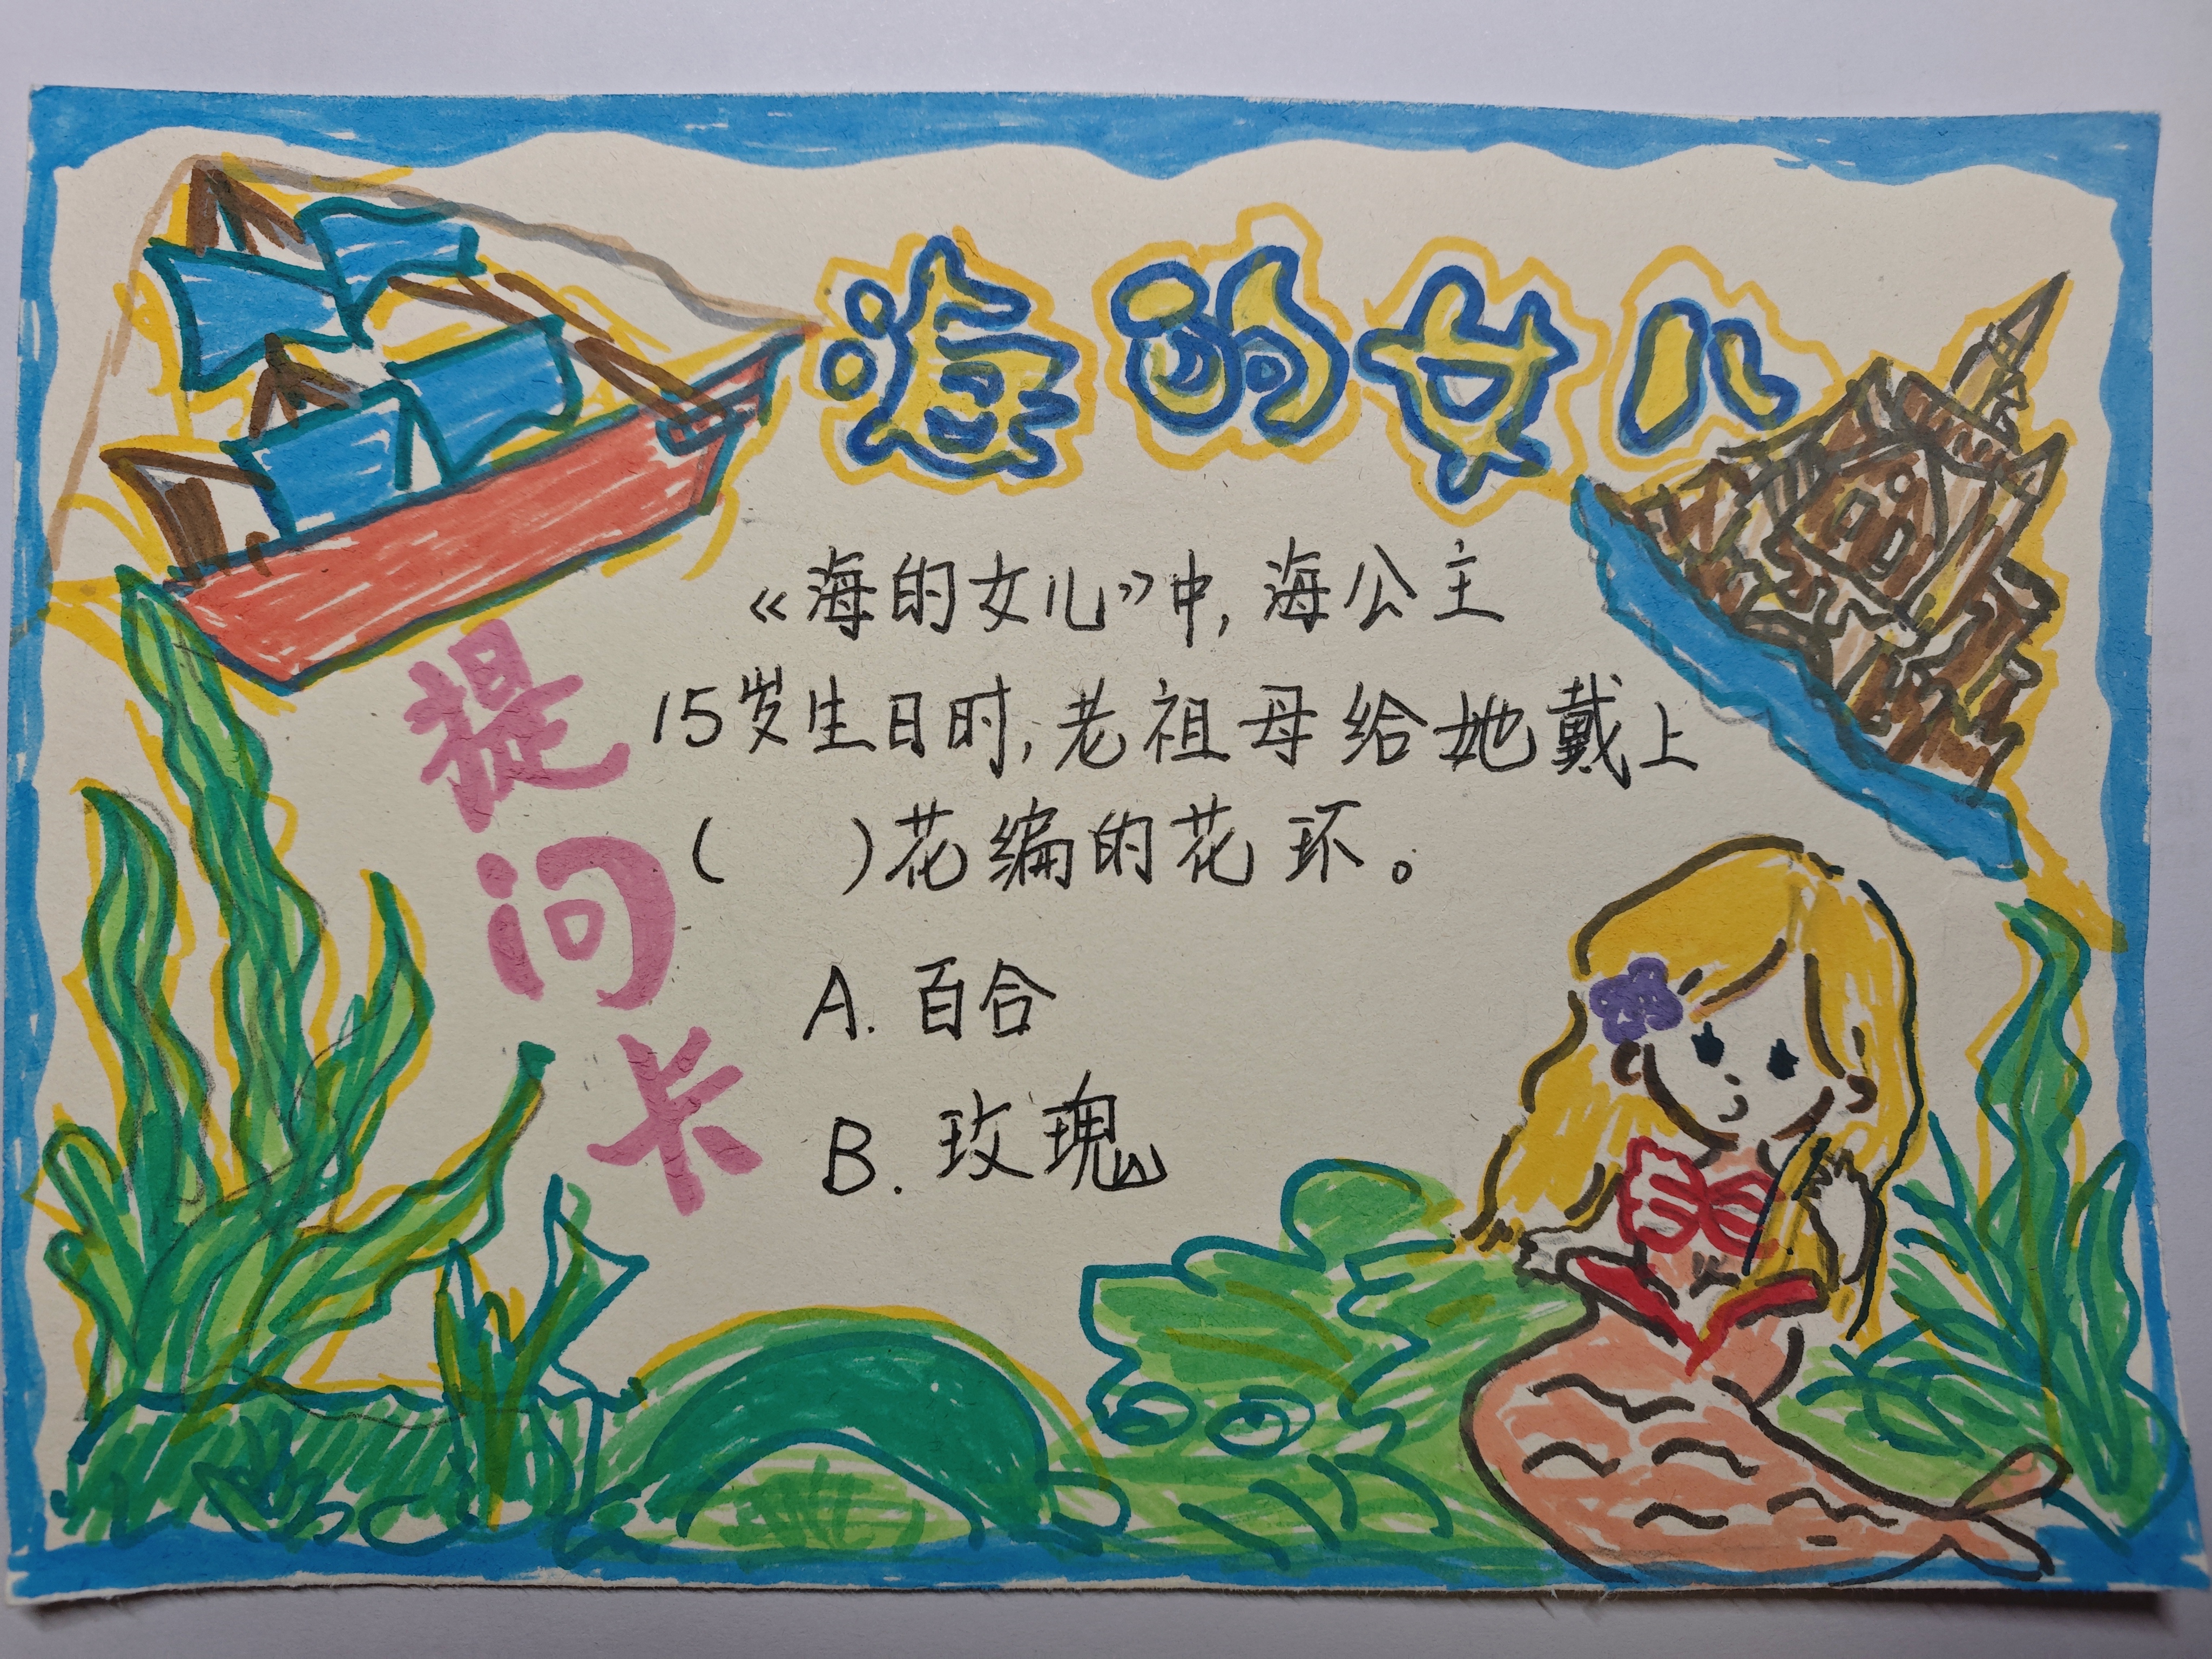 海的女儿
提问卡
《海的女儿》中,海公主
15岁生日时,老祖母给她戴上
(    )花编的花环。
A. 百合
B. 玫瑰